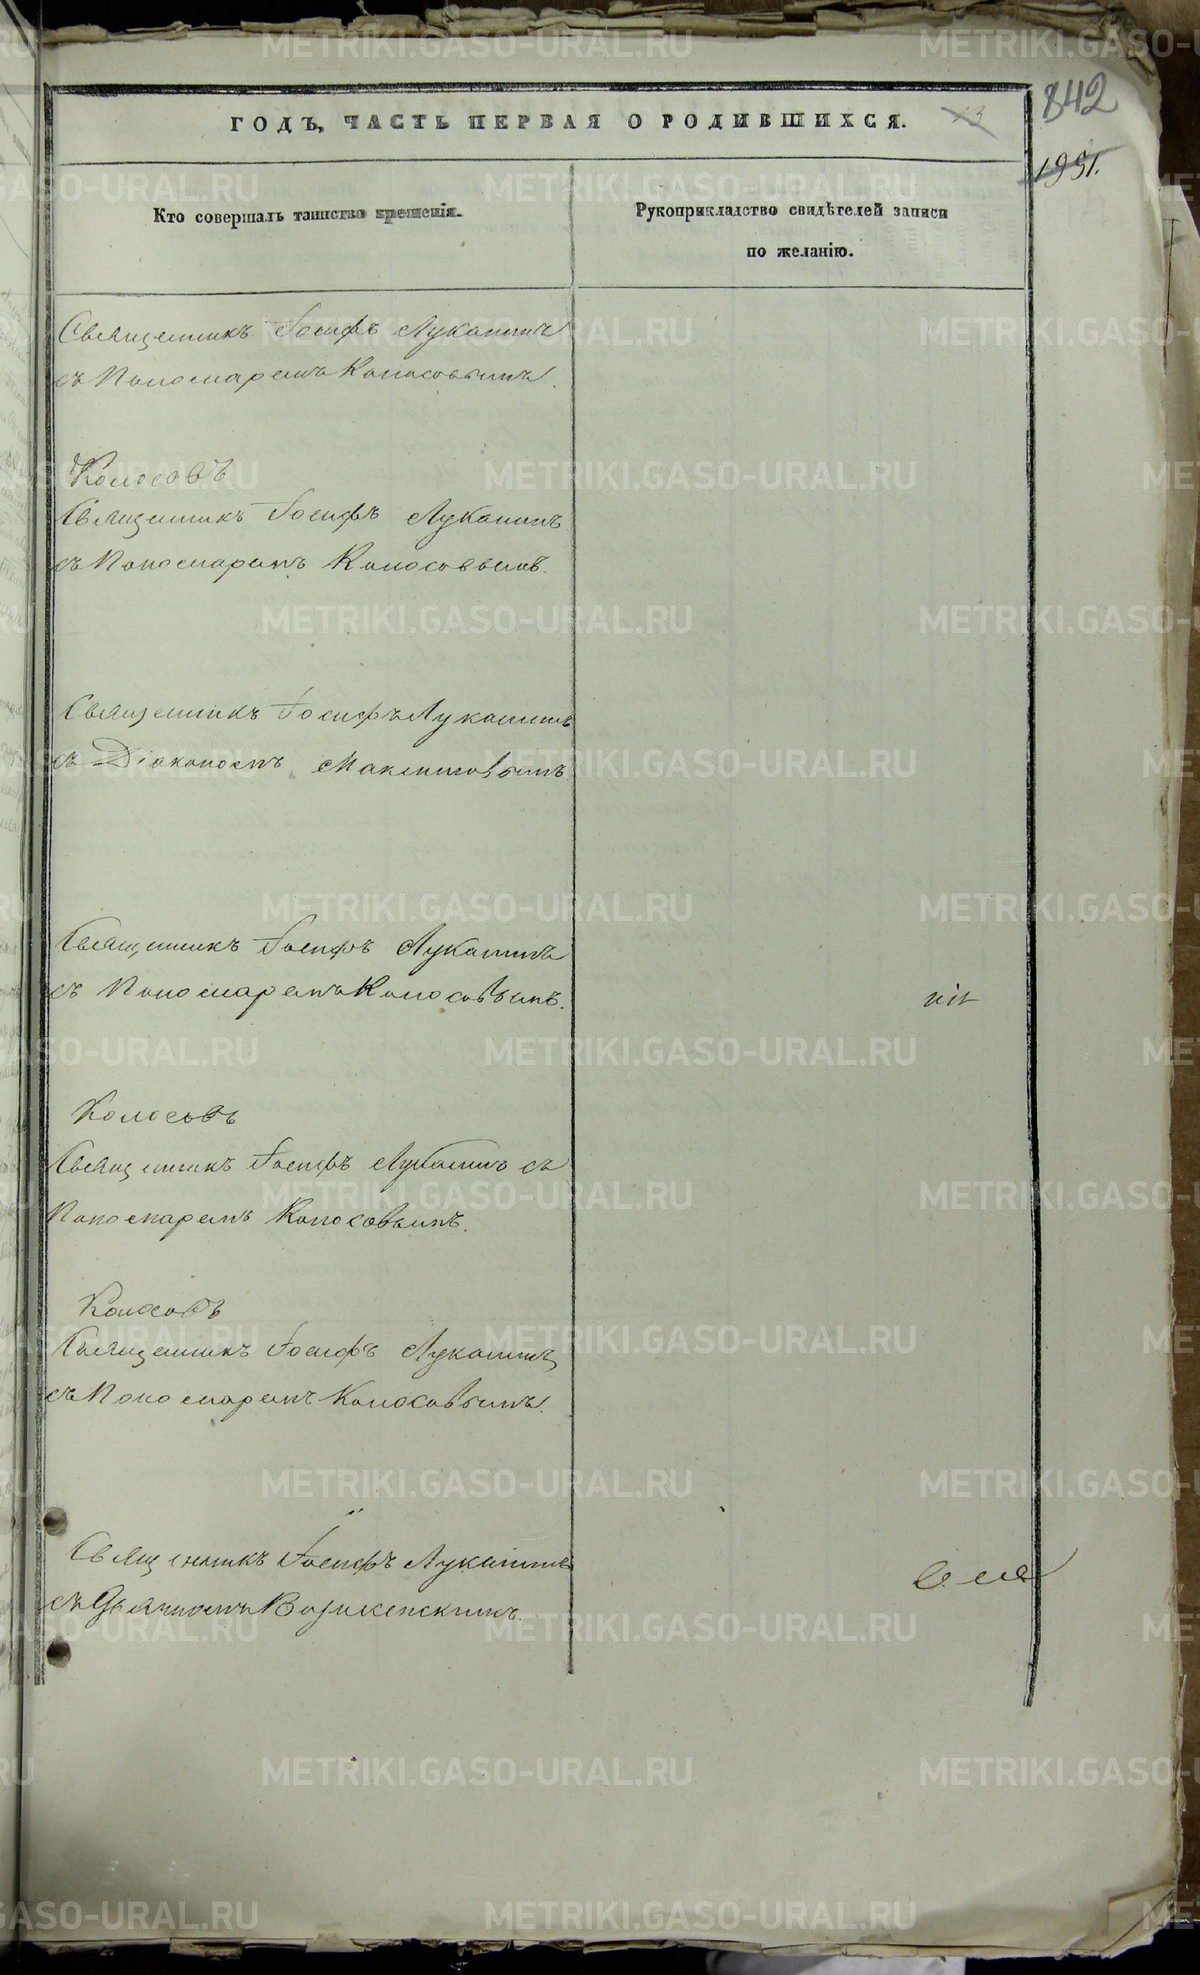 842
ГОДЪ, ЧАСТЬ ПЕРВАЯ О РОДИВШИХСЯ.
13
1951.
Кто совершалъ таинство крещенія.
Рукоприкладство свидѣтелей записи
по желанію.
Священникъ Іосифъ Луканинъ
съ Пономаремъ Колосовымъ.
Колосовъ
Священникъ Іосифъ Луканинъ
съ Пономаремъ Колосовымъ.
Священникъ Іосифъ Луканинъ
съ Діакономъ Максимовымъ.
Священникъ Іосифъ Луканинъ
съ Пономаремъ Колосовымъ.
Колосовъ
Священникъ Іосифъ Луканинъ съ
Пономаремъ Колосовымъ.
Колосовъ
Священникъ Іосифъ Луканинъ
съ Пономаремъ Колосовымъ.
Священникъ Іосифъ Луканинъ
съ Дьячкомъ
METRIKI.GASO-URAL.RU